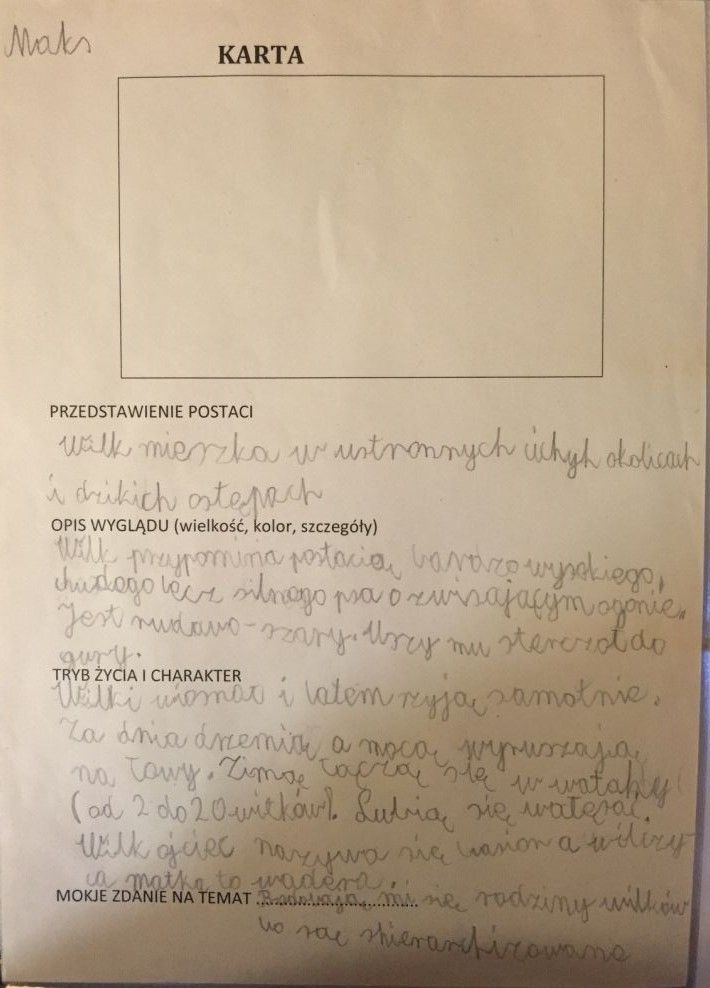 Maks
KARTA
PRZEDSTAWIENIE POSTACI
Wilk mieszka w ustronnych cichyh okolicach
i dzikich ostępach
OPIS WYGLĄDU (wielkość, kolor, szczegóły)
Wilk przypomina postacią bardzo wysokiego,
chudego lecz silnego psa o zwisającym ogonie.
Jest rudawo-szary. Uszy mu sterczot do
gury.
TRYB ŻYCIA I CHARAKTER
Wilki wiosną i latem rzyją samotnie.
Za dnia drzemią a nocą wyruszają
na łowy. Zimą łączą się w watahy
(od 2 do 20 wilków). Lubią się wałęsać.
Wilk ojciec nazywa się basior a wilczy
ca matka to wadera.
MOKJE ZDANIE NA TEMAT Podobają mi się rodziny wilków
bo są shierarchizowane